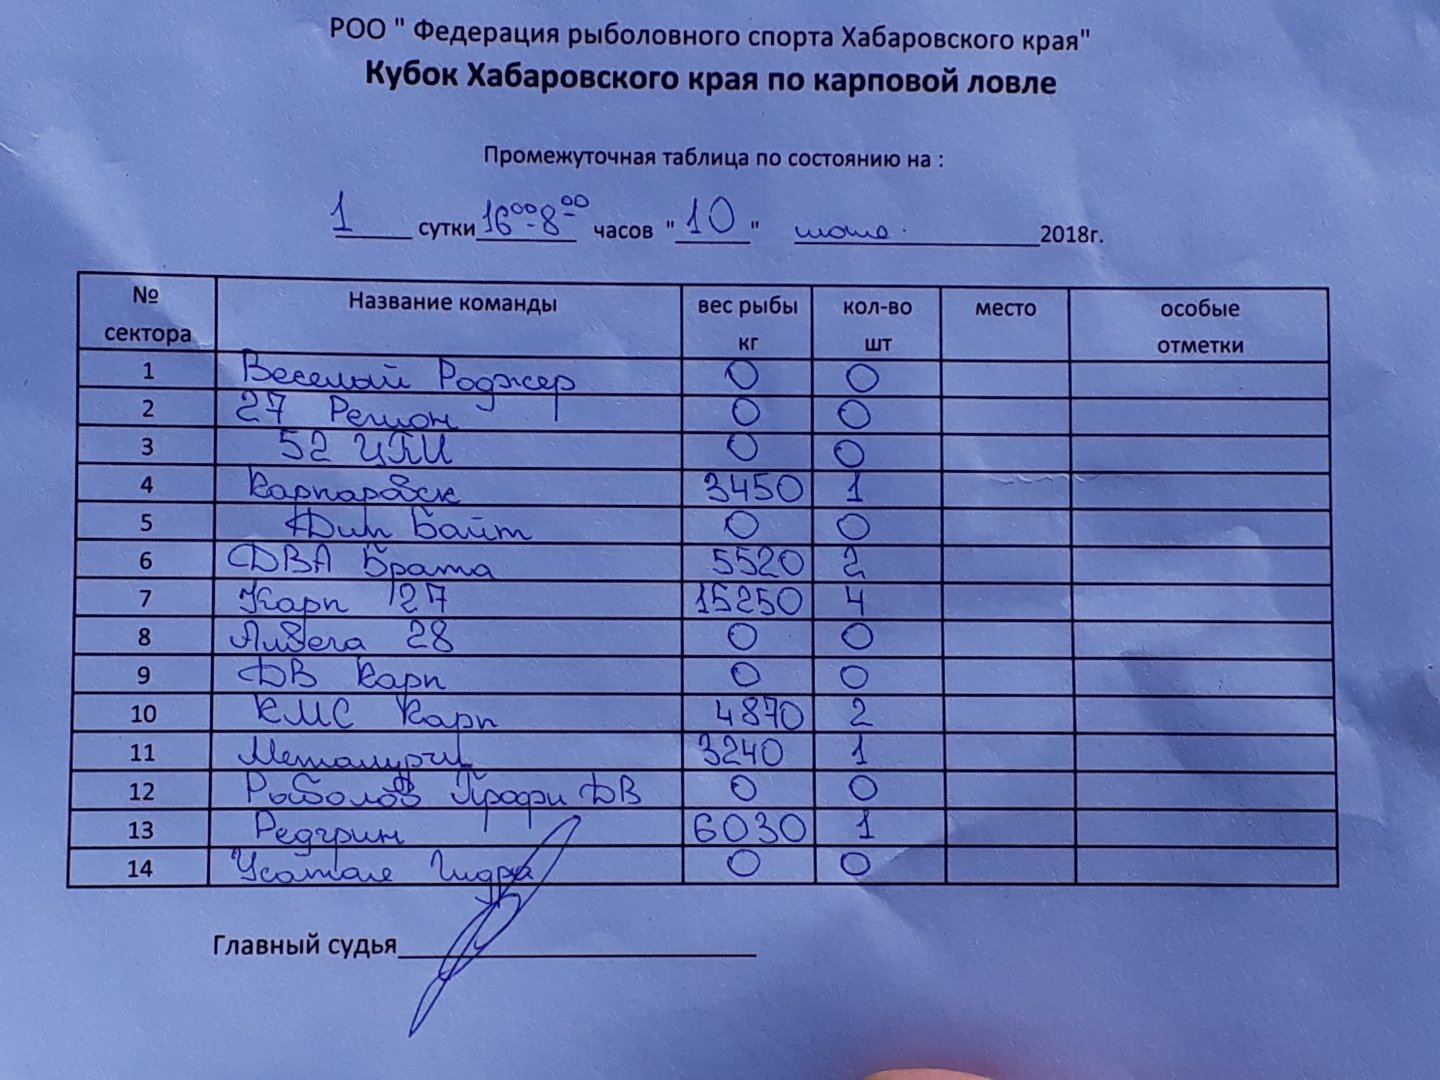 РОО " Федерация рыболовного спорта Хабаровского края"
Кубок Хабаровского края по карповой ловле
Промежуточная таблица по состоянию на :
1 сутки 16⁰⁰-8⁰⁰ часов "10" 2018г.
№ сектора Название команды вес рыбы кг кол-во шт место особые отметки
1 Веселый Роджер 0 0
2 27 Регион 0 0
3 52 ЦПИ 0 0
4 Карпаровск 3450 1
5 Дип Байт 0 0
6 ДВА Брата 5520 2
7 Карп 27 15250 4
8 0 0
9 ДВ Карп 0 0
10 КМС Карп 4870 2
11 Металурги 3240 1
12 Рыболов Профи ДВ 0 0
13 Редгрин 6030 1
14 Усатые Гидра 0 0
Главный судья